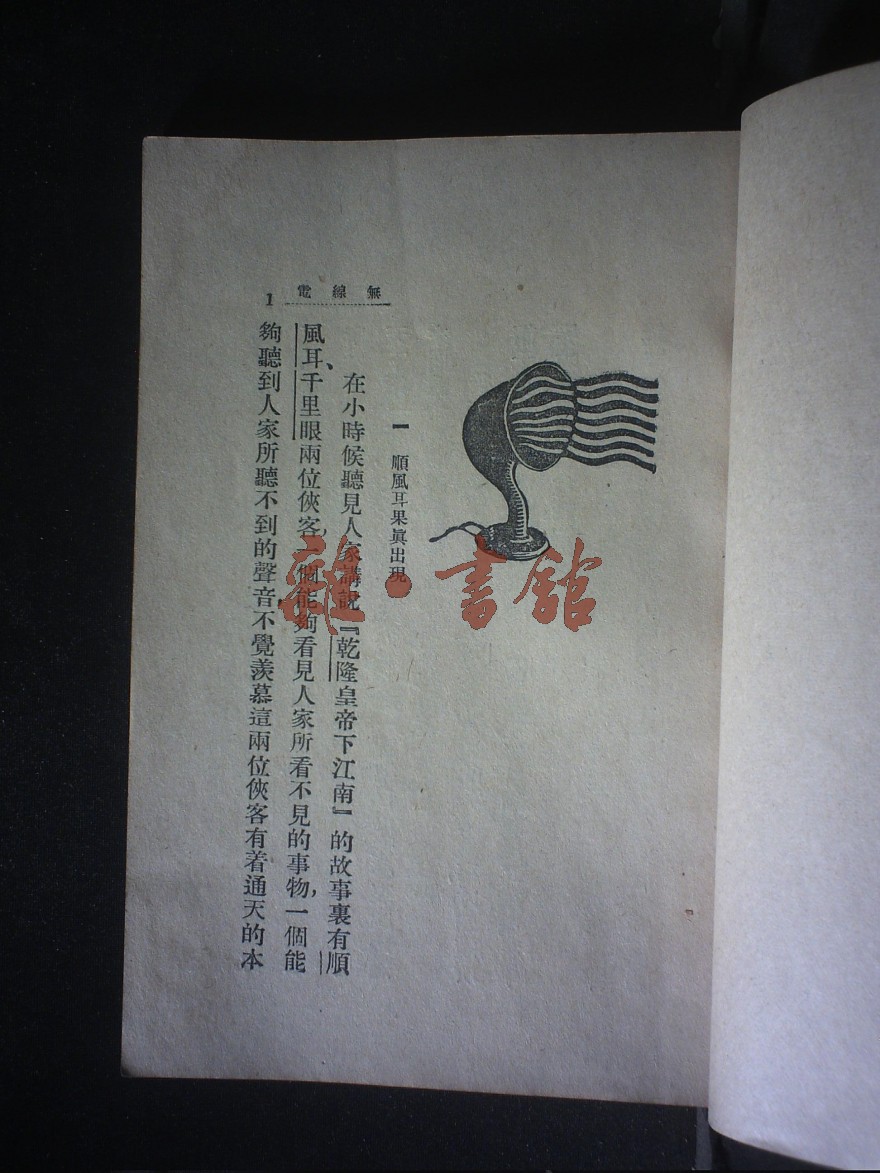 無線電
1
一 順風耳果眞出現
在小時候聽見人家講說『乾隆皇帝下江南』的故事裏有順
風耳、千里眼兩位俠客,一個能夠看見人家所看不見的事物,一個能
夠聽到人家所聽不到的聲音,不覺羨慕這兩位俠客有着通天的本
雜·書館